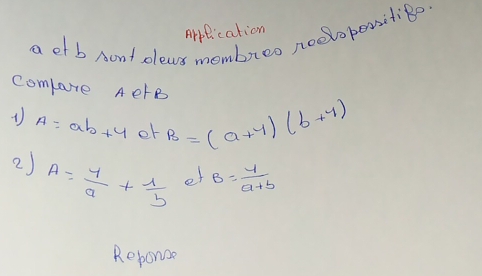 Application
a et b sont deux nombres réels possitifs.
Compare A et B
1) A = ab + 1 et B = (a+1) (b+1)
2) A = 1/a + 1/b et B = 1/a+b
Reponse